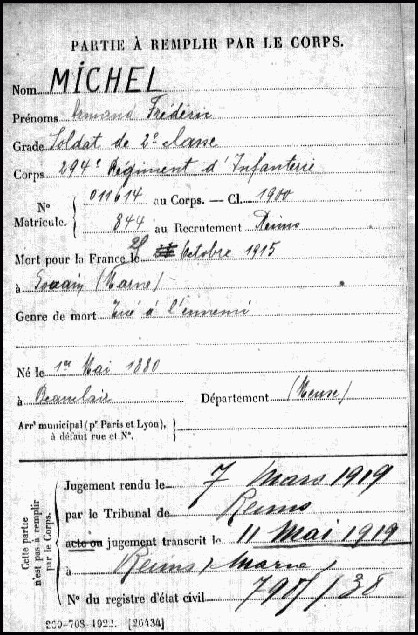 PARTIE À REMPLIR PAR LE CORPS.
Nom MICHEL
Prénoms Armand Frédéric
Grade Soldat de 2e classe
Corps 294e Régiment d'Infanterie
N° Matricule. 011614 au Corps. — Cl. 1900
844 au Recrutement Reims
Mort pour la France le Octobre 1915
à Souain (Marne)
Genre de mort Tué à l'ennemi
Né le 1er Mai 1880
à Département (Meuse)
Arrt municipal (pr Paris et Lyon),
à défaut rue et N°.
Cette partie
n'est pas à remplir
par le Corps.
Jugement rendu le 7 Mars 1919
par le Tribunal de Reims
acte ou jugement transcrit le 11 Mai 1919
à Reims Marne
N° du registre d'état civil
[26434]